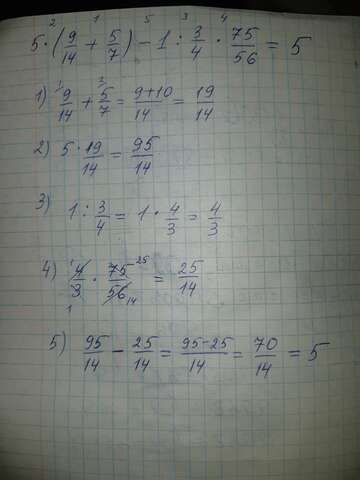 2 1 5 3 4
5 · (9/14 + 5/7) − 1 : 3/4 · 75/56 = 5
1) 9/14 + 5/7 = 9+10/14 = 19/14
2) 5 · 19/14 = 95/14
3) 1 : 3/4 = 1 · 4/3 = 4/3
4) 4/3 · 75/56 = 25/14
5) 95/14 − 25/14 = 95−25/14 = 70/14 = 5